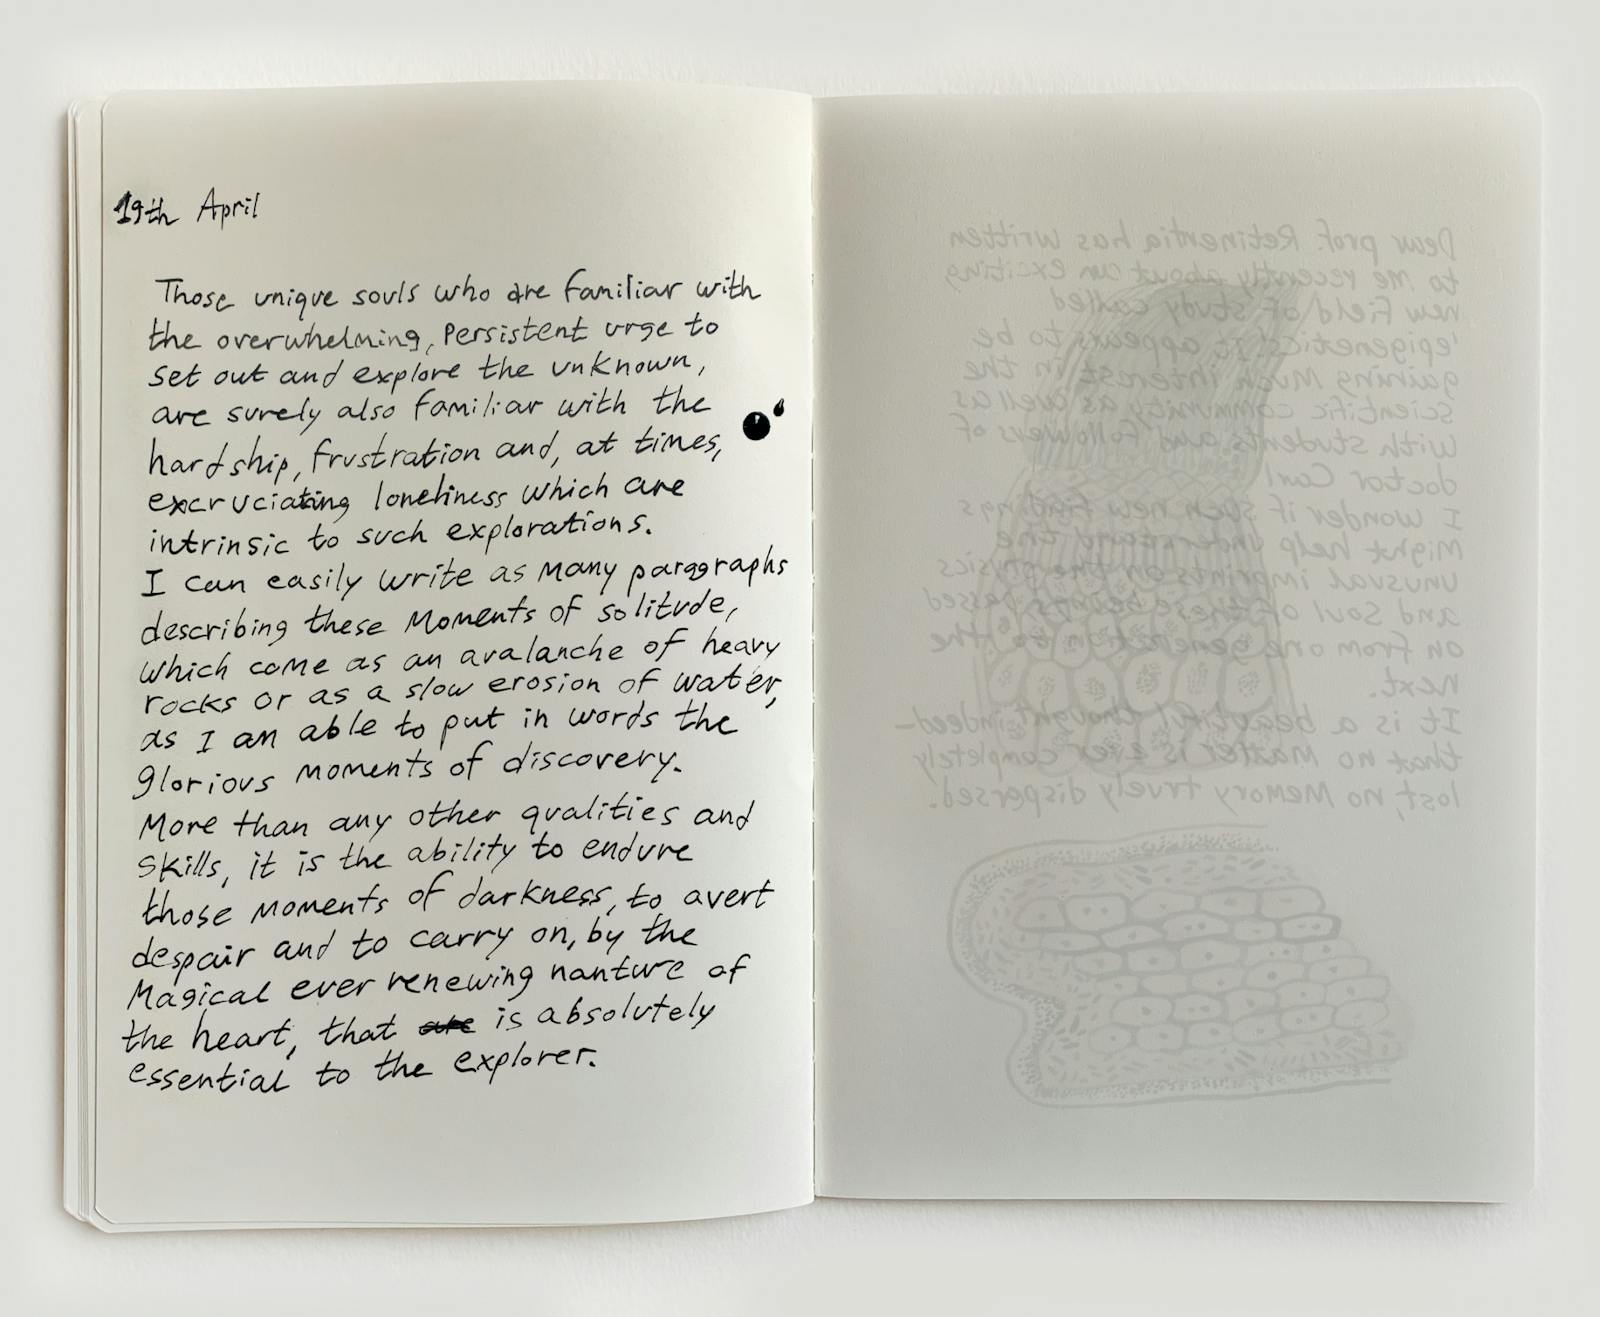 19th April
Those unique souls who are familiar with
the overwhelming, persistent urge to
set out and explore the unknown,
are surely also familiar with the
hardship, frustration and, at times,
excruciating loneliness which are
intrinsic to such explorations.
I can easily write as many paragraphs
describing these moments of solitude,
which come as an avalanche of heavy
rocks or as a slow erosion of water,
as I am able to put in words the
glorious moments of discovery.
More than any other qualities and
skills, it is the ability to endure
those moments of darkness, to avert
despair and to carry on, by the
magical ever renewing nanture of
the heart, that are is absolutely
essential to the explorer.
Dear prof. Retinentia has written
to me recently about an exciting
new field of study called
'epigenetics'. It appears to be
gaining much interest in the
scientific community as well as
with students and followers of
doctor Carl
I wonder if such new findings
might help understand the
unusual imprints on the physics
and soul of these beings passed
on from one generation to the
next.
It is a beautiful thought indeed-
that no matter is ever completely
lost, no memory truely dispersed.